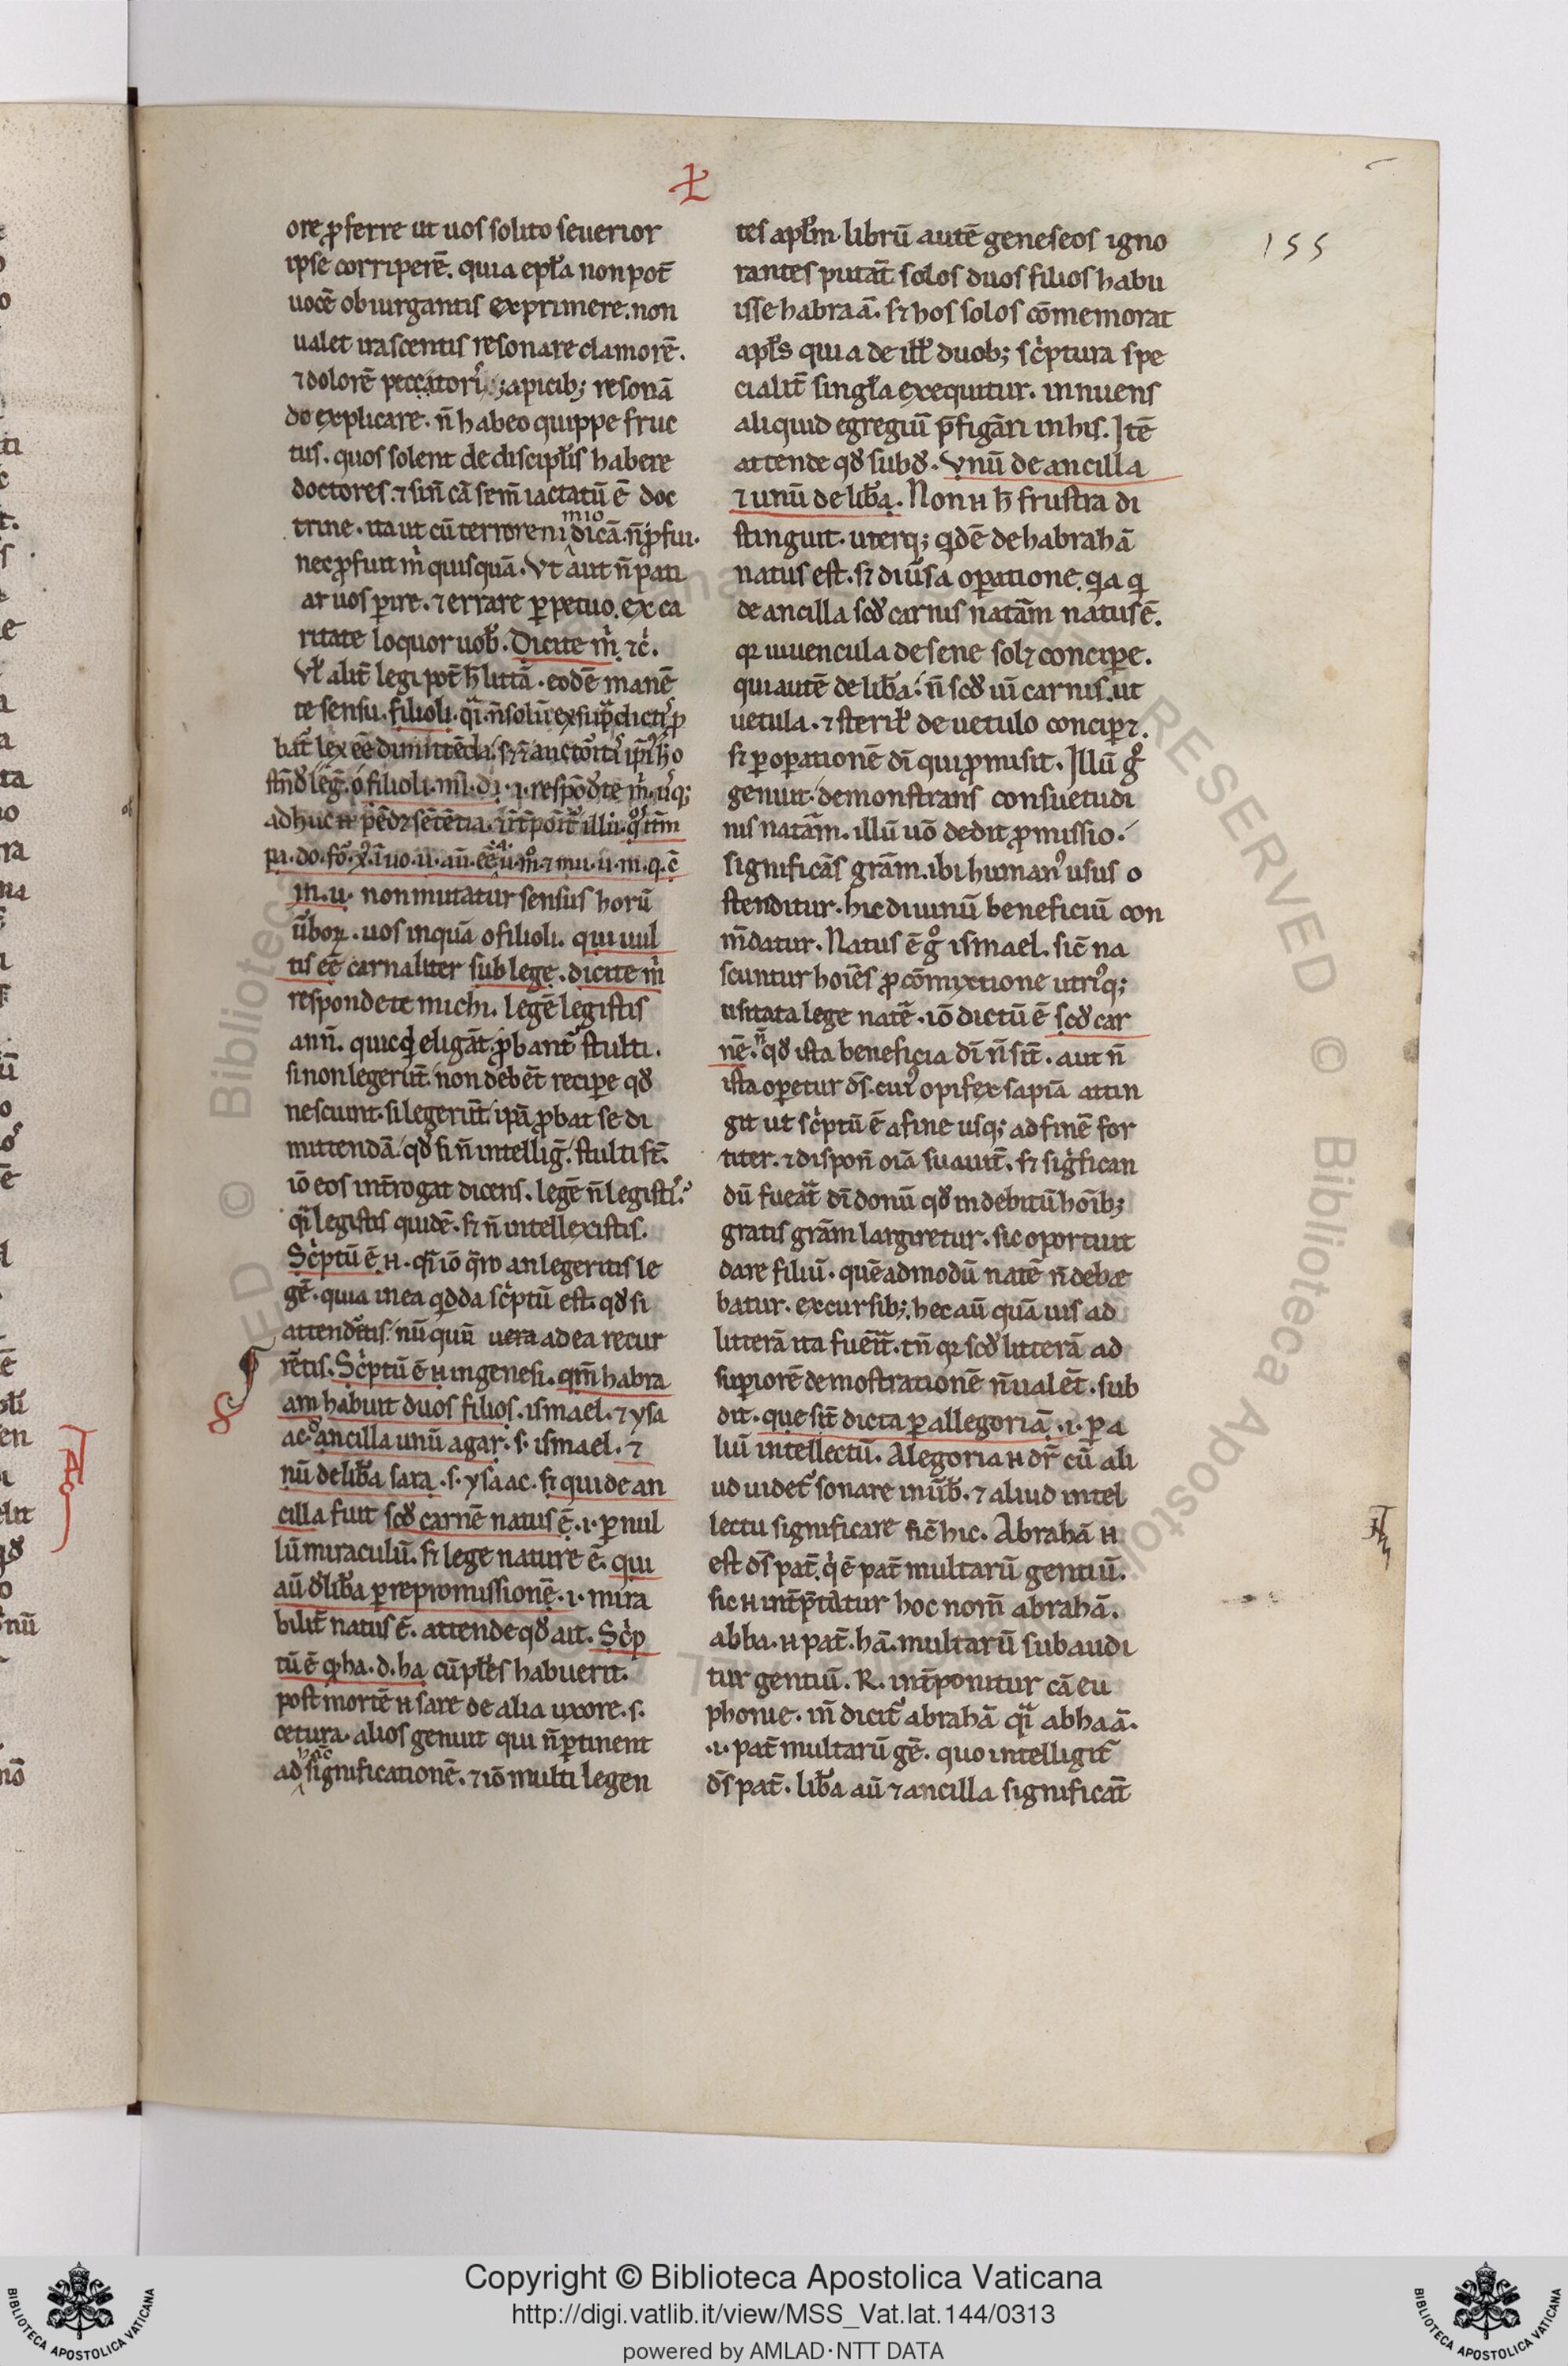 155
ore ꝓferre ut uos solito seuerior
ipse corriperē. quia epl̄a non pot̄
uocē obiurgantis exprimere. non
ualet irascentis resonare clamorē.
⁊ dolorē apicib; resonā
do explicare. n̄ habeo quippe fruc
tus. quos solent de discipl̄is habere
doctores. ⁊ sin̄ cā sem̄ iactatū ē doc
trine. ita ut cū terrore nimio dicā. n̄ ꝓfui.
nec ꝓfuit m̄ quisquā. Vt aut n̄ pati
ar uos ꝑire. ⁊ errare ꝑpetuo. ex ca
ritate loquor uob̄. Dicite m̄. ⁊c̄.
Vl̄ alit̄ legi pot̄ h̄ littā. eodē manē
te sensu. filioli. qͣi. n̄ solū ex sup̄dictis ꝓ
bat̄ lex eē dimittēda.
adhuc
m. u. non mutatur sensus horū
ūboꝝ. uos inquā o filioli. qui uul
tis eē carnaliter sub lege. dicite m̄
respondete michi. legē legistis
an n̄. quicq̄d eligāt ꝓbant̄ stulti.
si non legerūt. non debēt recipe qd̄
nesciunt. si legerūt. ip̄a ꝓbat se di
mittendā. qd̄ si n̄ intelliḡt. stulti st̄.
iō eos int̄rogat dicens. legē n̄ legistis.
qͣi legistis quidē. sꝫ n̄ intellexistis.
Scͥptū ē .n. qͣi iō q̄ro an legeritis le
gē. quia in ea q̄dda scͥptū est. qd̄ si
attend̄etis. nūquā uera ad ea recur
rētis. Scͥptū ē .n. in genesi. qm̄ habra
am habuit duos filios. ismael. ⁊ ysa
ac. de ancilla unū agar. s. ismael. ⁊
nū de lib̄a sara. s. ysaac. sꝫ qui de an
cilla fuit scd̄ carnē natus ē. i. ꝑ nul
lū miraculū. sꝫ lege nature ē. qui
aū d̄ lib̄a ꝑ repromissionē. i. mira
bilit̄ natus ē. attende qd̄ ait. Scͥp
tū ē ha. d. ha cū pl̄es habuerit.
post mortē .n. sare de alia uxore. s.
cetura. alios genuit qui n̄ ꝑtinent
ad hāc significationē. ⁊ iō multi legen
tes apl̄m. librū autē geneseos igno
rantes putāt solos duos filios habu
isse habraā. sꝫ hos solos cōmemorat
apl̄s quia de ill̄ duob; scͥptura spe
cialit̄ singl̄a exequitur. innuens
aliquid egregiū p̄figāri in his. Itē
attende qd̄ subd̄. Vnū de ancilla
⁊ unū de lib̄a. Non .n. h̄ frustra di
stinguit. uterq; q̄dē de habrahā
natus est. sꝫ diūsa oꝑatione. q̄a q̄
de ancilla scd̄ carnis natām natus ē.
q̄ iuuencula de sene solꝫ concipe.
qui autē de lib̄a. n̄ scd̄ uī carnis. ut
uetula. ⁊ steril̄ de uetulo concipꝫ.
sꝫ ꝑ oꝑationē dī qui ꝓmisit. Illū gͦ
genuit demonstrans consuetudi
nis natām. illū uō dedit ꝓmissio.
significās grām. ibi human᷒ usus o
stenditur. hic diuinū beneficiū con
m̄datur. Natus ē gͦ ismael. sic̄ na
scuntur hoīes ꝓ cōmyxtione utri᷒q;
usitata lege nat̄e. iō dictū ē scd̄ car
nē. n̄ qd̄ ista beneficia dī n̄ sīt. aut n̄
ista oꝑetur d̄s. cui᷒ opifex sapīa attin
git ut scͥptū ē a fine usq; ad finē for
titer. ⁊ dispon̄ oīa suauit̄. sꝫ significan
dū fuerat dī donū qd̄ indebitū hoīb;
gratis grām largiretur. sic oportuit
dare filiū. quēadmodū nat̄e n̄ debe
batur. excursib; hec aū quāuis ad
litterā ita fuer̄t. tn̄ q̄ scd̄ litterā ad
supiorē demostrationē n̄ ualēt. sub
dit. que sīt dicta ꝑ allegoriā. i. ꝑ a
liū intellectū. Alegoria .n. dr̄ cū ali
ud uidet̄ sonare in ūb̄. ⁊ aliud intel
lectu significare sic̄ hic. Abrahā .n.
est d̄s pat̄. qͥ ē pat̄ multarū gentiū.
sic .n. int̄p̄tatur hoc nom̄ abrahā.
abba .n. pat̄. hā. multarū subaudi
tur gentiū. R. int̄ponitur cā eu
phonie. in̄ dicit̄ abrahā qͣi abhaā.
.i. pat̄ multarū gē. quo intelligit̄
d̄s pat̄. lib̄a aū ⁊ ancilla significāt
Copyright © Biblioteca Apostolica Vaticana
http://digi.vatlib.it/view/MSS_Vat.lat.144/0313
powered by AMLAD·NTT DATA